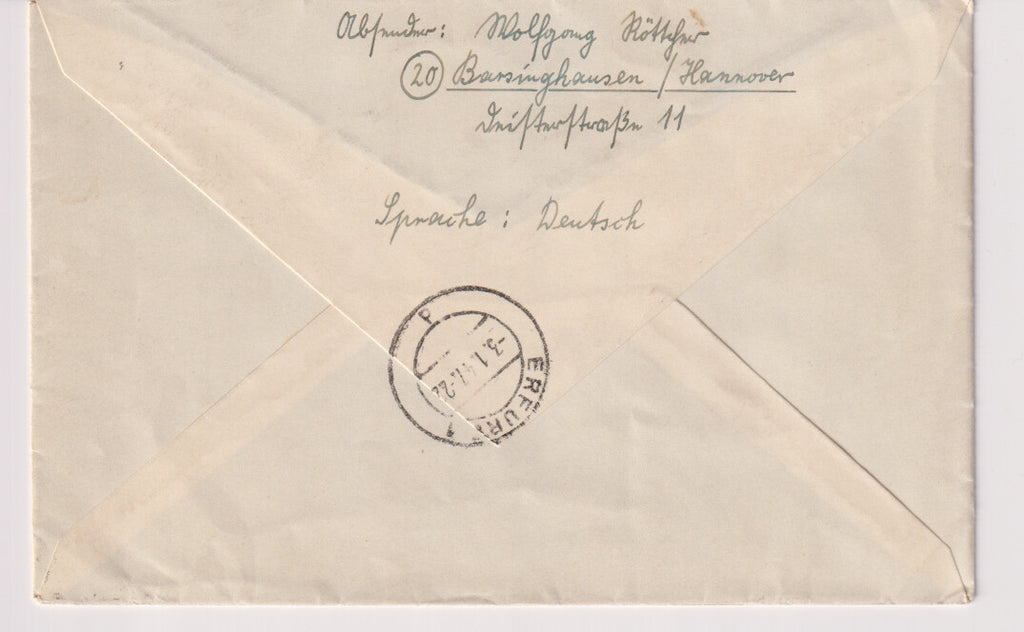 Absender: Wolfgang Röttcher
(20) Barsinghausen / Hannover
Deisterstraße 11
Sprache: Deutsch
ERFURT 1
P
-3.1.47.-2